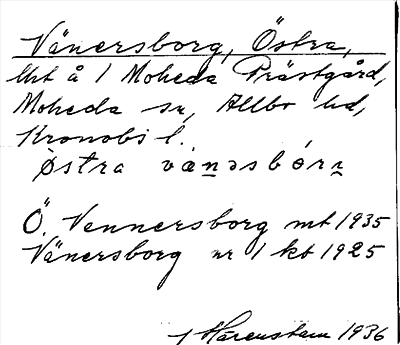 Vänersborg, Östra,
Uht å 1 Moheda Prästgård,
Moheda sn, Allbo hd,
Kronobs l.
Östra vænəsbórɲ
Ö. Vennersborg mt 1935
Vänersborg nr 1 kt 1925
J Härenstam 1936